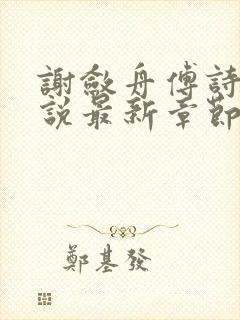 謝斂舟傅詩
說最新章節
鄭基發